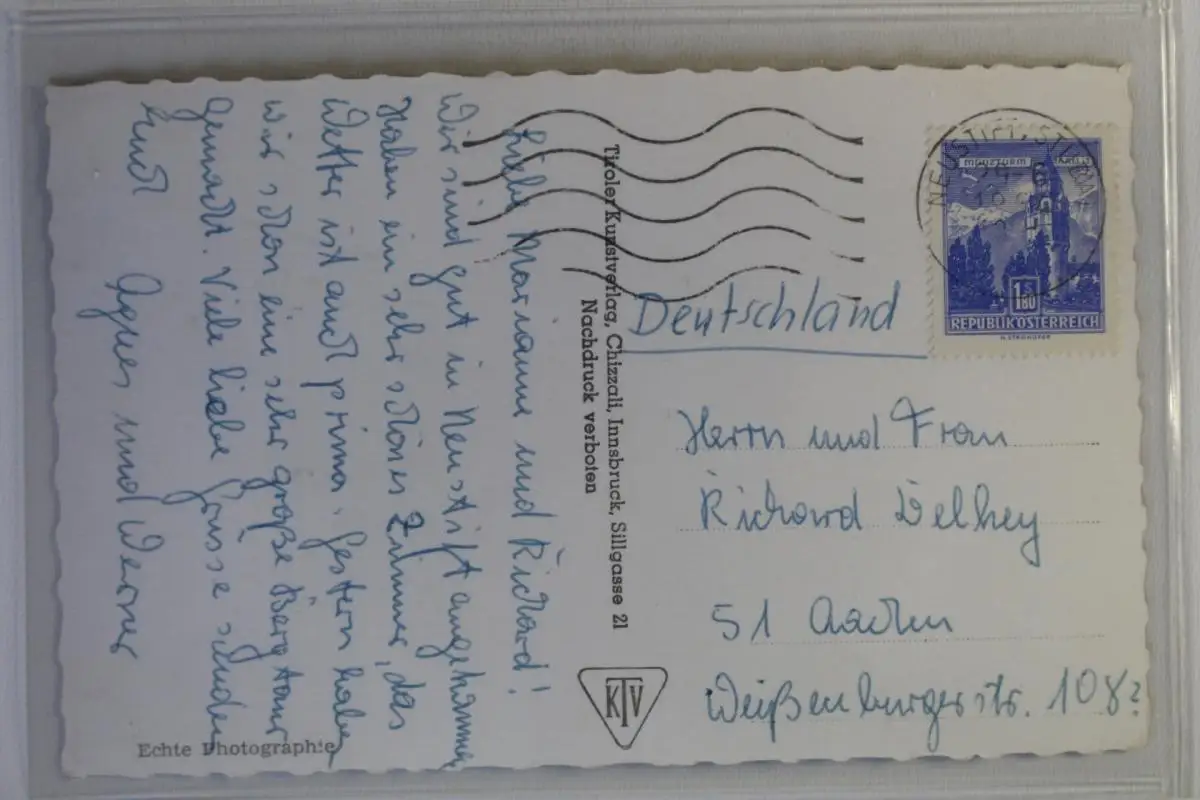 Liebe Marianne und Richard!
Wir sind gut in Neustift angekommen
Haben ein sehr schönes Zimmer, das
Wetter ist auch prima. Gestern haben
wir schon eine sehr große Bergtour
gemacht. Viele liebe Grüsse senden
Euch
Agnes und Werner
Echte Photographie
Tiroler Kunstverlag, Chizzali, Innsbruck, Sillgasse 21
Nachdruck verboten
KTV
NEUSTIFT STUBAI
MÜNZTURM HALL i. T.
1 S 80
REPUBLIK ÖSTERREICH
Deutschland
Herrn und Frau
Richard Delhey
51 Aachen
Weißenburgerstr. 108?